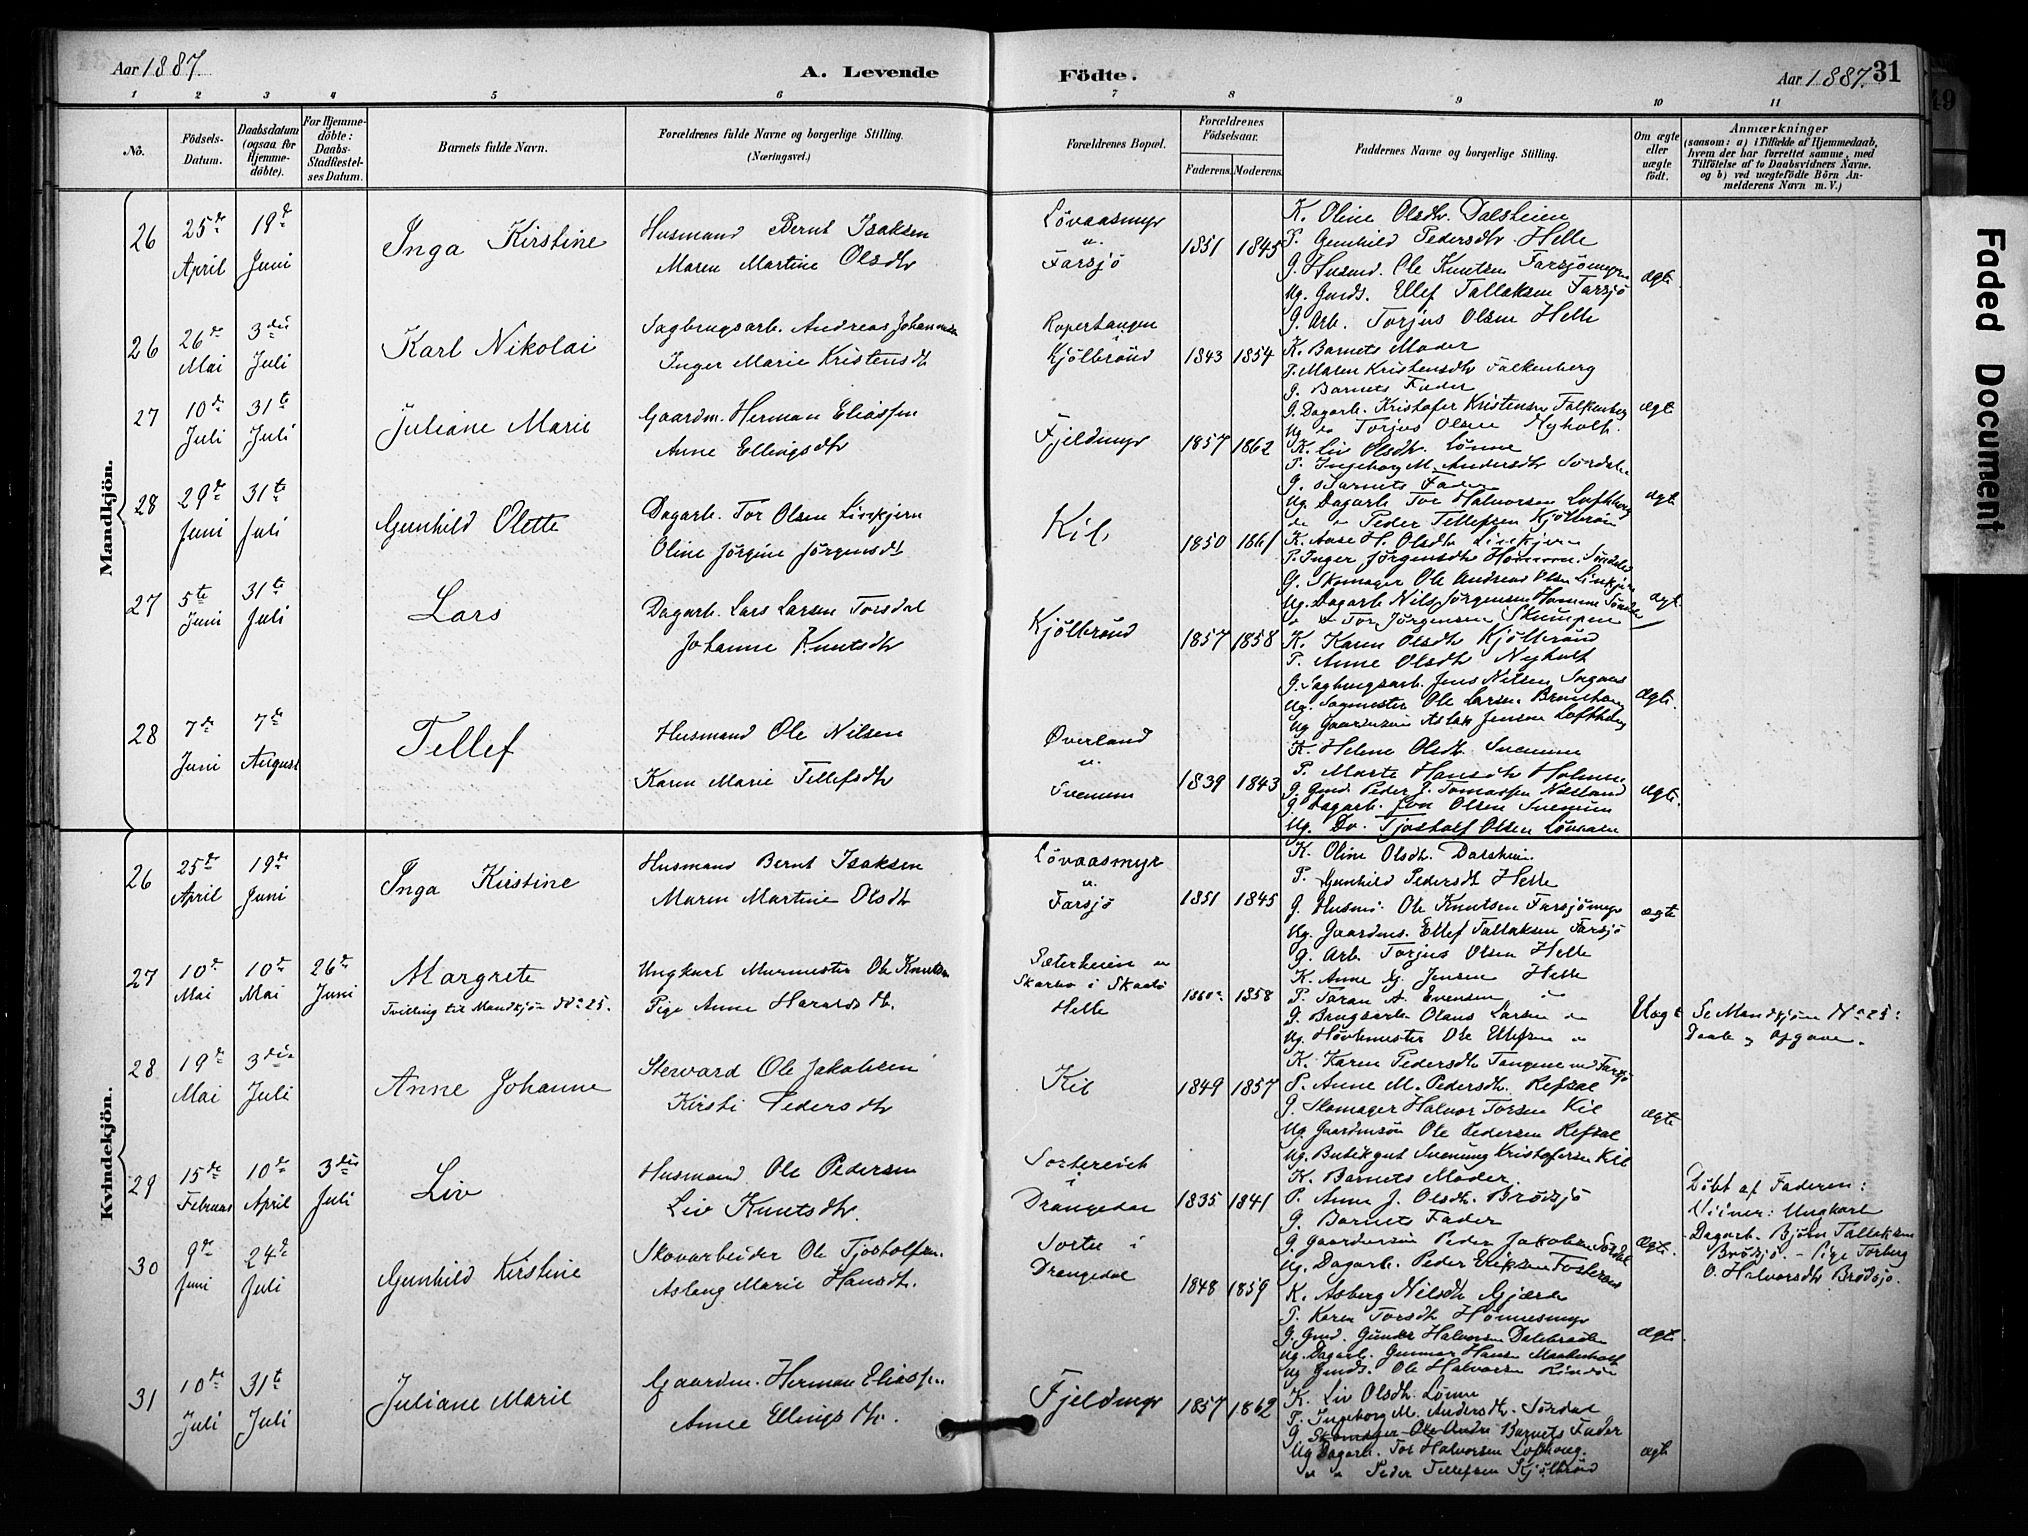 Aar 1887.
A. Levende
Födte.
Aar 1887.
31
49
1 2 3 4 5 6 7 8 9 10 11
No.
Födsels-
Datum.
Daabsdatum
(ogsaa for
Hjemme-
döbte).
For Hjemme-
döbte:
Daabs-
Stadfæstel-
ses Datum.
Barnets fulde Navn.
Forældrenes fulde Navne og borgerlige Stilling.
(Næringsvei.)
Forældrenes Bopæl.
Forældrenes
Födselsaar.
Faderens. Moderens.
Faddernes Navne og borgerlige Stilling.
Om ægte
eller
uægte
födt.
Anmærkninger
(saasom: a) i Tilfælde af Hjemmedaab,
hvem der har forrettet samme, med
Tilföielse af to Daabsvidners Navne.
og b) ved uægtefödte Börn An-
melderens Navn m. V.)
Mandkjön.
26
25de
April
19de
Juni
Inga Kirstine
Husmand Bernt Isaksen
Maren Martine Olsdtr
Lövaasmyr
u.
Farsjö
1851 1845
K. Oline Olsdtr. Dalsheien
P. Gunhild Pedersdtr Helle
G. Husmd. Ole Knutsen Farsjömyr
Ug. Gmds. Ellef Tallaksen Farsjö
G. Arb. Torjus Olsen Helle
ægte
26
26de
Mai
3die
Juli
Karl Nikolai
Sagbrugsarb. Andreas Johannesen
Inger Marie Kristensdtr
Ropertangen
Kjölbrönd
1843 1854
K. Barnets Moder
P. Maren Kristensdtr Falkenberg
G. Barnets Fader
G. Dagarb. Kristofer Kristensen Falkenberg
Ug do Torjus Olsen Nyholt.
ægte
27
10de
Juli
31te
Juli
Juliane Marie
Gaardm. Herman Eliassen
Anne Ellingsdtr
Fjeldmyr
1857 1862
K. Liv Olsdtr. Lönne
P. Ingeborg M. Andersdtr Sördal
G. Barnets Fader
Ug. Dagarb Tor Halvorsen Lofthaug
do do Peder Tellefsen Kjölbrön
ægte
28
29de
Juni
31te
Juli
Gunhild Olette
Dagarb. Tor Olsen Linkjern
Oline Jörgine Jörgensdtr
Kil
1850 1861
K. Anse H. Olsdtr Linkjern
P. Inger Jörgensdtr Sördal
G. Skomager Ole Andreas Olsen Linkjern
Ug. Dagarb Nils Jörgensen
Tor Jörgensen Skumpen
ægte
27
5te
Juni
31te
Juli
Lars
Dagarb. Lars Larsen Torsdal
Johanne Knutsdtr
Kjölbrönd
1857 1858
K. Karen Olsdtr Kjölbrönd
P. Anne Olsdtr Nyholt
G. Sagbrugsarb. Jens Nilsen
Ug. Sagmester Ole Larsen
Ug Gaardmsön Aslak Jensen Lofthaug
ægte
28
7de
Juni
7de
August
Tellef
Husmand Ole Nilsen
Karen Marie Tellefsdtr
Överland
u.
Svenum
1839 1843
K. Helene Olsdtr. Svenum
P. Marte Hansdtr
G. Gmd. Peder J. Tomassen
G. Dagarb. Olsen Svenum
Ug. Do. Tjostolf Olsen
ægte.
Kvindekjön.
26
25de
April
19de
Juni
Inga Kirstine
Husmand Bernt Isaksen
Maren Martine Olsdtr
Lövaasmyr
u.
Farsjö
1851 1845
K. Oline Olsdtr. Dalsheien.
P. Gunhild Pedersdtr Helle
G. Husmd. Ole Knutsen Farsjömyr
Ug. Gaardms. Ellef Tallaksen Farsjö
G. Arb. Torjus Olsen Helle
ægte
27
10de
Mai
10de
Mai
26de
Juni
Margrete
Tvilling til Mandkjön No 25.
Ungkarl Murmester Ole Knutsen
Pige Anne Haraldsdtr.
Sæterheien u
Skarbo i Skaatö
Helle
1860 1858
K. Anne G. Jensen Helle
P. Taran A. Evensen do
G. Brugsarb. Olaus Larsen do
Ug. Ole Ellefsen do
Uægte
Se Mandkjön No 25:
Daab og Opgave.
28
19de
Mai
3die
Juli
Anne Johanne
Steward Ole Jakobsen
Kirsti Pedersdtr
Kil
1849 1857
K. Karen Pedersdtr Tangene ved Farsjö
P. Anne M. Pedersdtr. Refsal
G. Skomager Halvor Torsen Kil
Ug. Gaardmsön Ole Pedersen Refsal
Ug. Butikgut Svenung Kristofersen Kil
ægte
29
15de
Februar
10de
April
3die
Juli
Liv
Husmand Ole Pedersen
Liv Knutsdtr.
i
Drangedal
1835 1841
K. Barnets Moder.
P. Anne J. Olsdtr. Brödsjö
G. Barnets Fader
G. Gaardmsön Peder Jakobsen
Ug. Dagarb. Peder Eriksen
ægte.
Döbt af Faderen:
Vidner: Ungkarl
Dagarb. Björn Tallaksen
Brödsjö. - Pige Torberg
O. Halvorsdtr Brödsjö.
30
9de
Juni
24de
Juli
Gunhild Kirstine
Skovarbeider Ole Tjostolfsen.
Aslaug Marie Hansdtr.
i
Drangedal
1848 1859
K. Asberg Nilsdtr
P. Karen Torsdtr
G. Gmd. Gunder Halvorsen
Ug. Dagarb. Gunnar Hansen
Ug Gmds. Ole Halvorsen
ægte.
31
10de
Juli
31te
Juli
Juliane Marie
Gaardm. Herman Eliassen.
Anne Ellingsdtr.
Fjeldmyr
1857 1862
K. Liv Olsdtr. Lönne
P. Ingeborg M. Andersdtr. Sördal
G. Skomager Ole Andr Barnets Fader
Ug Dagarb. Tor Halvorsen Lofthaug.
" " Peder Tellefsen Kjölbrönd
ægte
Faded Document